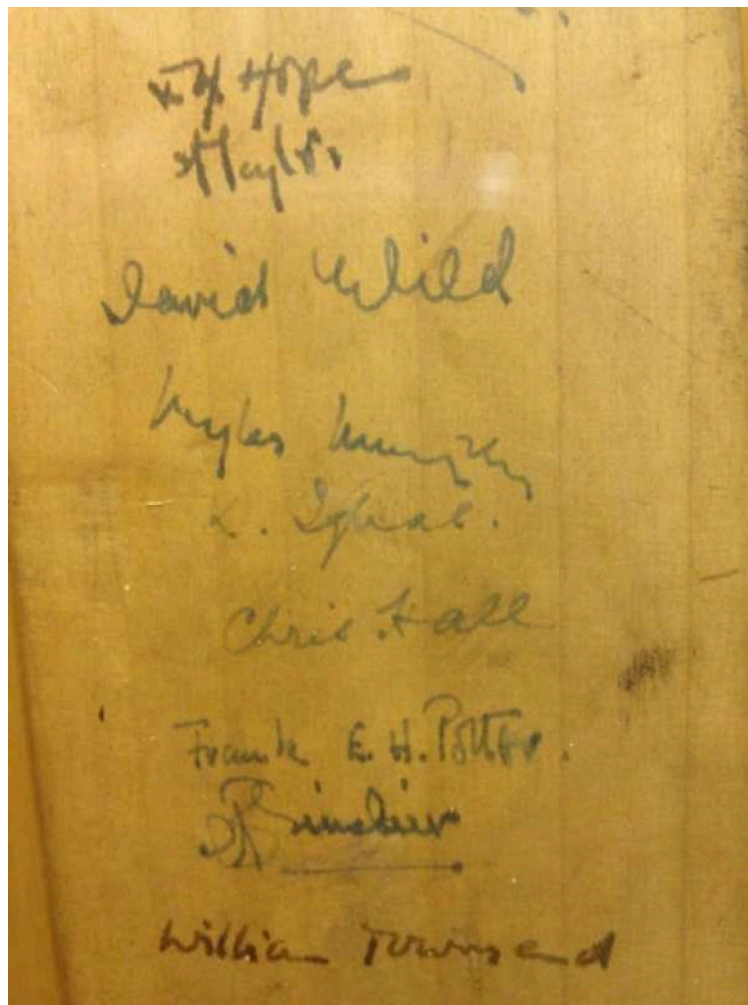 Hope
Taylor.
David Wild
Myles Murphy
Iqbal.
Chris Hall
Frank E. H. Potter.
William Townsend